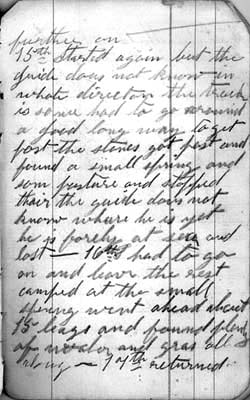 further on —
15th Started again but the
guide does not know in
whate direction the track
is some had to go around
a good long way to get
past the stones got past and
found a small spring and
som pasture and stopped
their the guide does not
know where he is yet
he is forely at sea and
lost — 16th had to go
on and leave the rest
camped at the small
spring went ahead about
15 leags and found plenty
of watar and gras all
along — 17th returned